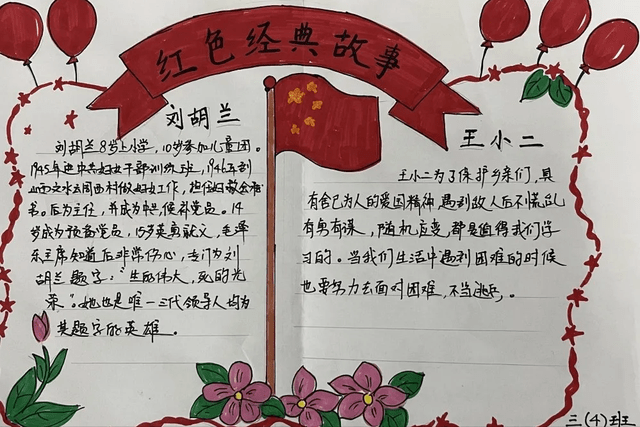 红色经典故事
刘胡兰
刘胡兰8岁上小学，10岁参加儿童团。
1945年进中共妇女干部训练班，1946年到
山西文水云周西村做妇女工作，担任妇救会秘
书。后为主任，并成为中共候补党员。14
岁成为预备党员，15岁英勇就义，毛泽
东主席知道后非常伤心，专门为刘
胡兰题字："生的伟大，死的光
荣"。她也是唯一三代领导人均为
其题字的英雄。
王小二
王小二为了保护乡亲们，具
有舍己为人的爱国精神，遇到敌人后不慌乱
有勇有谋，随机应变，都是值得我们学
习的。当我们生活中遇到困难的时候
也要努力去面对困难，不当逃兵。
三(4)班